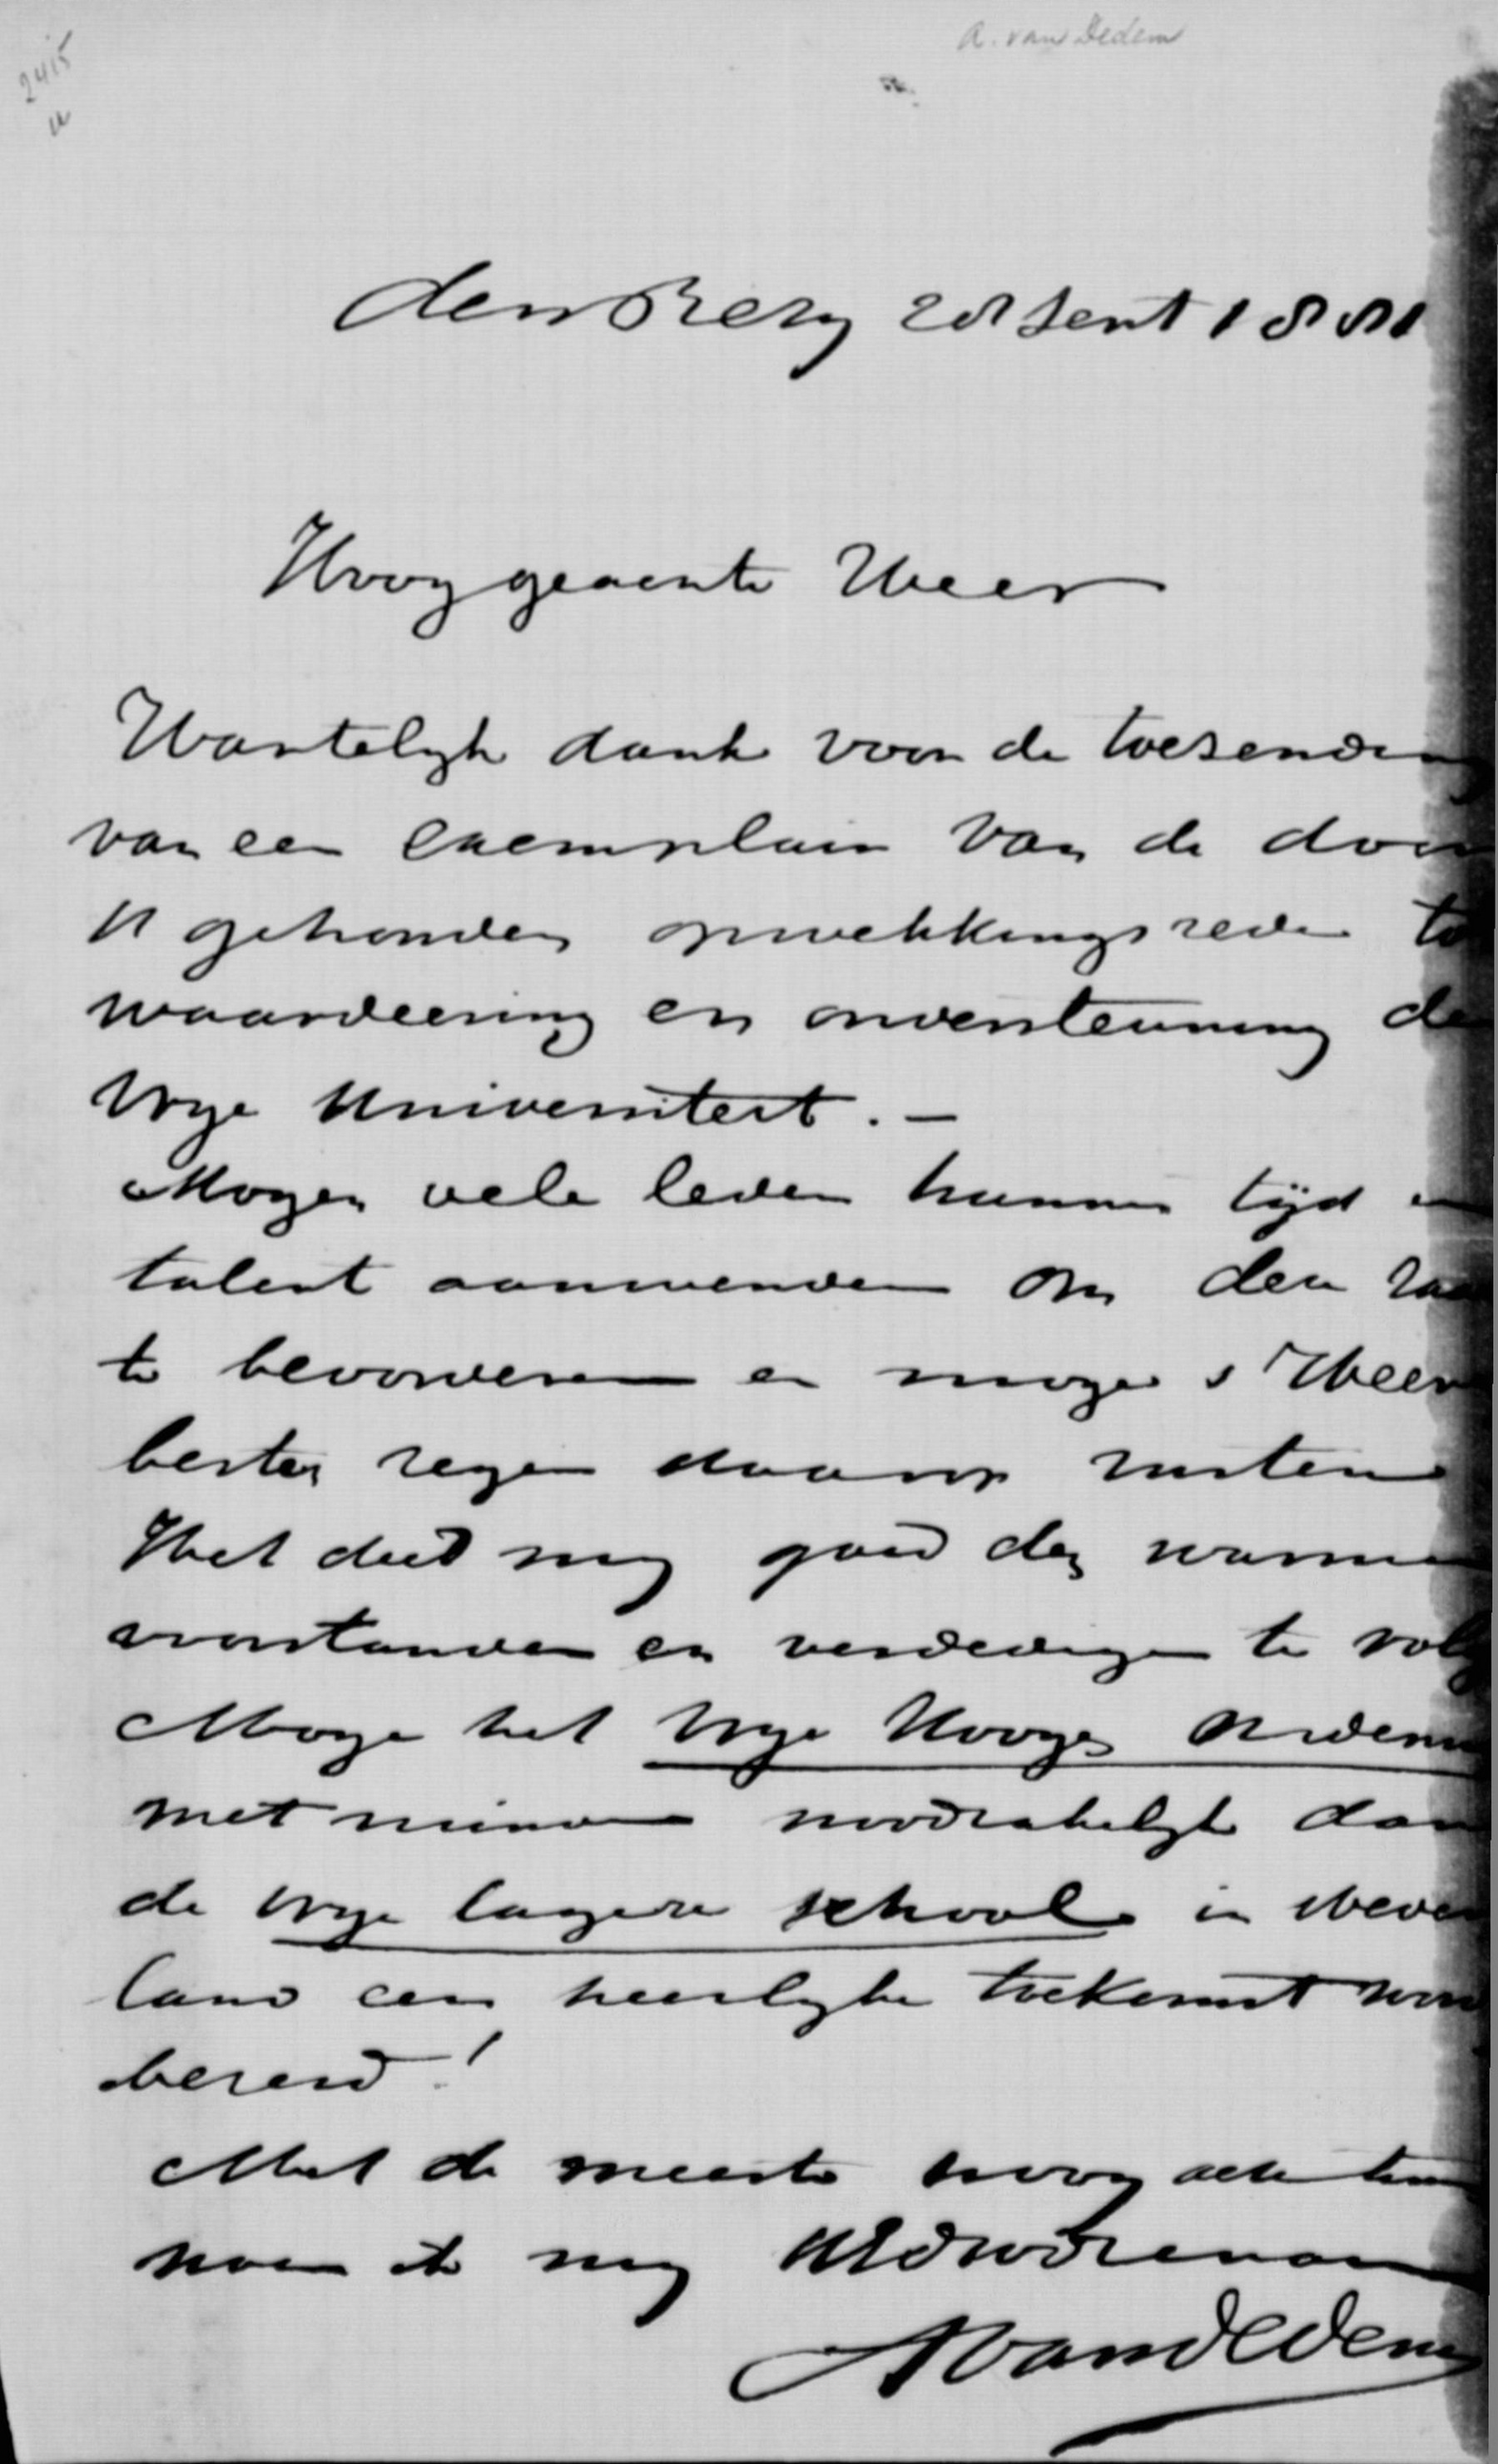 A. van Dedem
2415
den Berg 28 Sept 1881
Hooggeachte Heer
Hartelyk dank voor de toezending
van een exemplaar van de door
U gehouden opwekkingsrede tot
waardeering en ondersteuning de
Vrye Universiteit. —
Mogen vele leden hunnen tyd en
talent aanwenden om den zaak
te bevorderen en moge s Heeren
besten zegen daarop rusten
Het deed my goed den warmen
voorstander en verdediger te volgen
Moge het Vrye Hooger Onderwijs
met minder noodzakelyk dan
de vrye lagere school in Neder
land een heerlyke toekomst
bereid !
Met de meeste hoogachting
noem ik my UEdw Dienaar
AvanDedem